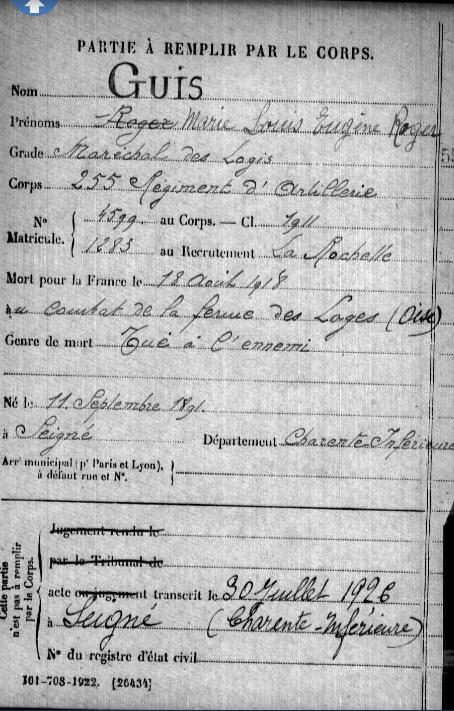 PARTIE À REMPLIR PAR LE CORPS.
Nom GUIS
Prénoms Roger Marie Louis Eugène Roger
Grade Maréchal des Logis
Corps 255 Régiment d'Artillerie
N° Matricule. 4599 au Corps. — Cl. 1911
1283 au Recrutement La Rochelle
Mort pour la France le 18 Août 1918
au combat de la ferme des Loges (Oise)
Genre de mort Tué à l'ennemi
Né le 11 Septembre 1891.
à Seigné Département Charente Inférieure
Arrt municipal (pr Paris et Lyon), à défaut rue et N°.
Cette partie n'est pas à remplir par le Corps.
Jugement rendu le
par le Tribunal de
acte ou jugement transcrit le 30 Juillet 1926
à Seigné (Charente-Inférieure)
N° du registre d'état civil
101-708-1922. [26434]